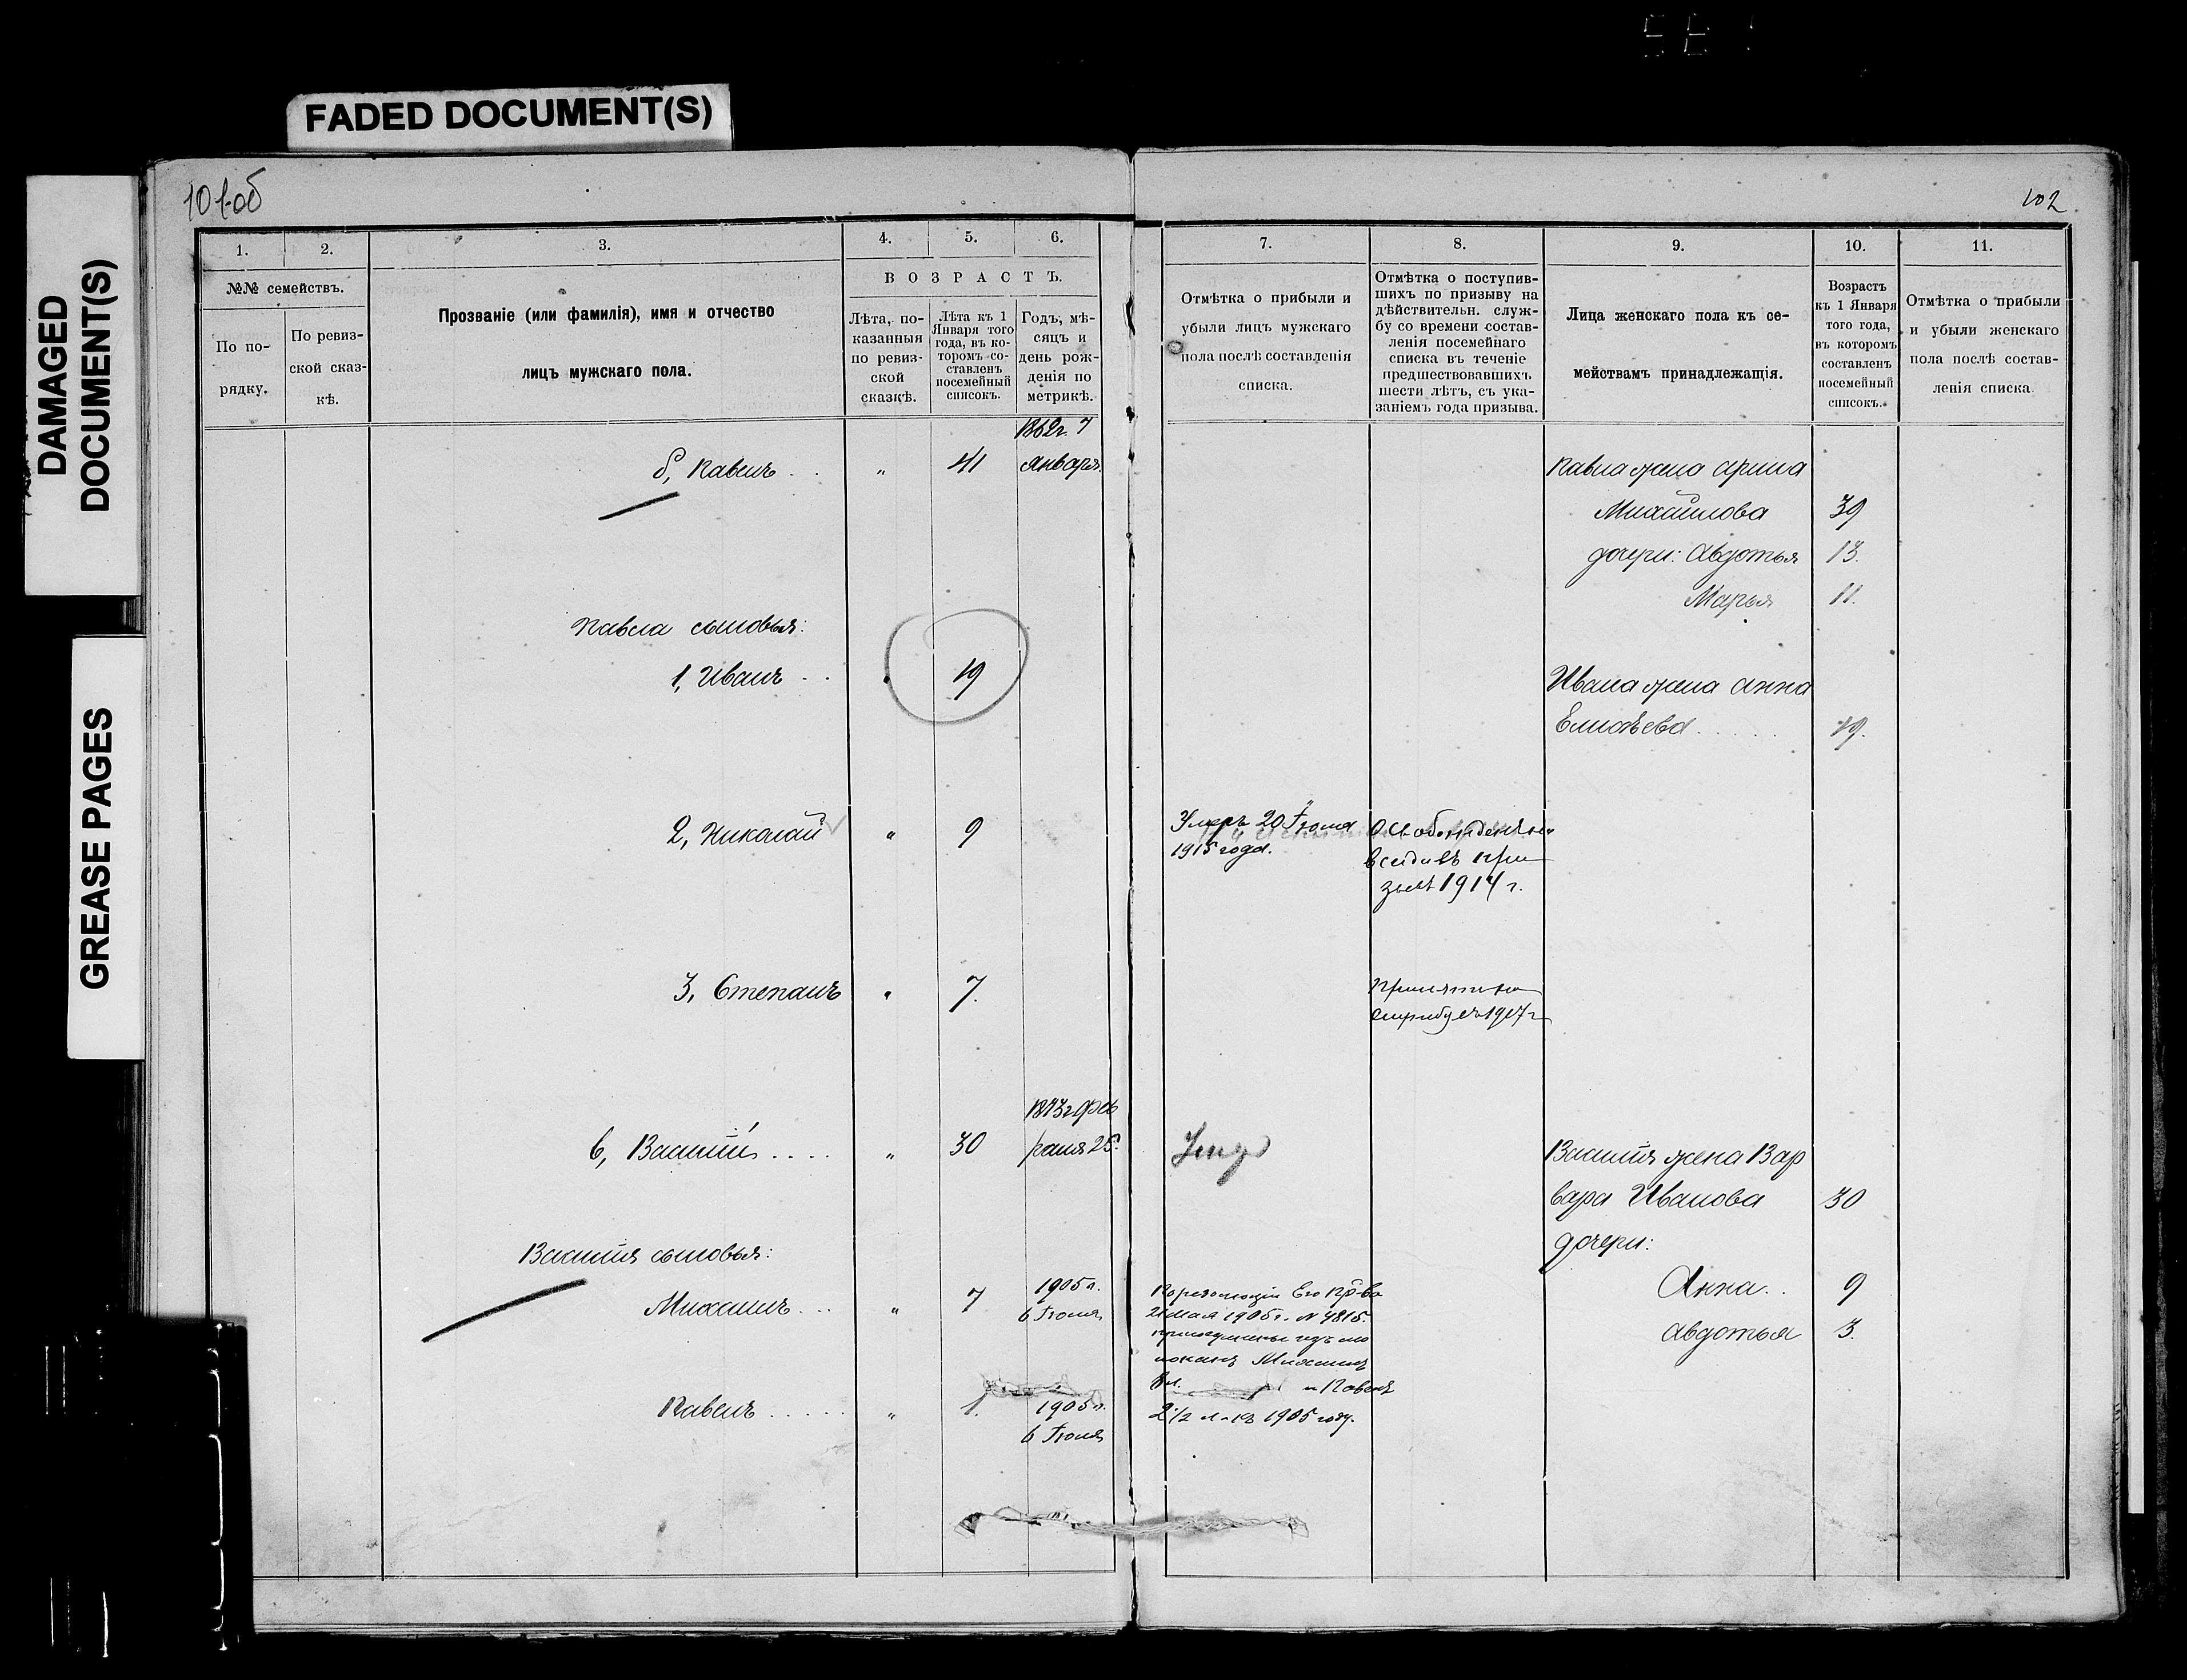 FADED DOCUMENT(S)
DAMAGED
DOCUMENT(S)
GREASE PAGES
101об
102
1.
2.
3.
4.
5.
6.
№№ семействъ.
По по-
рядку.
По ревиз-
ской сказ-
кѣ.
Прозваніе (или фамилія), имя и отчество
лицъ мужскаго пола.
ВОЗРАСТЪ.
Лѣта, по-
казанныя
по ревиз-
ской
сказкѣ.
Лѣта къ 1
Января того
года, въ ко-
торомъ со-
ставленъ
посемейный
списокъ.
Годъ, мѣ-
сяцъ и
день рож-
денія по
метрикѣ.
7.
8.
9.
10.
11.
Отмѣтка о прибыли и
убыли лицъ мужскаго
пола послѣ составленія
списка.
Отмѣтка о поступив-
шихъ по призыву на
дѣйствительн. служ-
бу со времени состав-
ленія посемейнаго
списка въ теченіе
предшествовавшихъ
шести лѣтъ, съ ука-
заніемъ года призыва.
Лица женскаго пола къ се-
мействамъ принадлежащія.
Возрастъ
къ 1 Января
того года,
въ которомъ
составленъ
посемейный
списокъ.
Отмѣтка о прибыли
и убыли женскаго
пола послѣ состав-
ленія списка.
1862г. 7
Павелъ . . „ 41 января.
Павла жена Арина
Михайлова 39
дочери: Авдотья 13.
Марья 11.
Павла сыновья:
1, Иванъ . . 19
Ивана жена Анна
Елисѣева . . . . . 19.
2, Николай „ 9
Умеръ 20 Іюля
1915 года.
призывъ 1914 г.
3, Степанъ „ 7.
Принятъ на
службу въ 1917 г
1873г фев
6, Василій . . . . „ 30 раля 25.
Умер
Василія жена Вар
вара Иванова 30
дочери:
Анна . . 9
Авдотья 3.
Василія сыновья:
Михаилъ . . . „ 7
1905 г.
6 Іюля
По резолюціи Его Пр-ва
21 Мая 1905 г. № 4815.
изъ мо
локанъ Михаилъ
8 л. и Павелъ
2 1/2 л. къ 1905 году.
Павелъ . . . . . „ 1.
1905 г.
6 Іюля